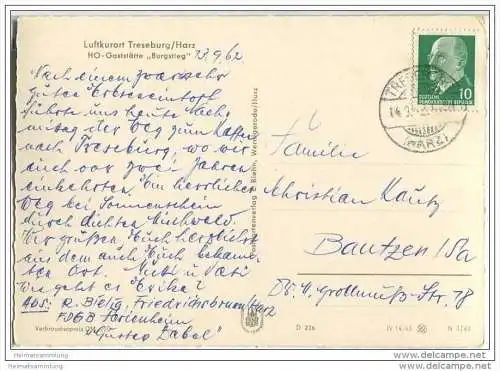 Luftkurort Treseburg/Harz
HO-Gaststätte „Burgstieg"
23.9.62
Nach einem zwar sehr
guten Erbseneintopf
führte uns heute Nach-
mittag der Weg zum Kaffee
nach Treseburg, wo wir
auch vor zwei Jahren
einkehrten. Ein herrlicher
Weg bei Sonnenschein
durch dichten Mischwald.
Wir grüßen Euch herzlichst
aus dem auch Euch bekann-
ten Ort.
Wie geht es Erika?
Abs: R. Bielig, Friedrichsbrunn/Harz
FDGB Ferienheim
"Gustav Zabel"
Familie
Christian Kautz
Bautzen/Sa
Dr. W. Grollmuß-Str. 78
DEUTSCHE
DEMOKRATISCHE REPUBLIK
10
TRESEBURG
(HARZ)
D 226
IV-14-48
Heimatsammlung.de
Heimatsammlung.de